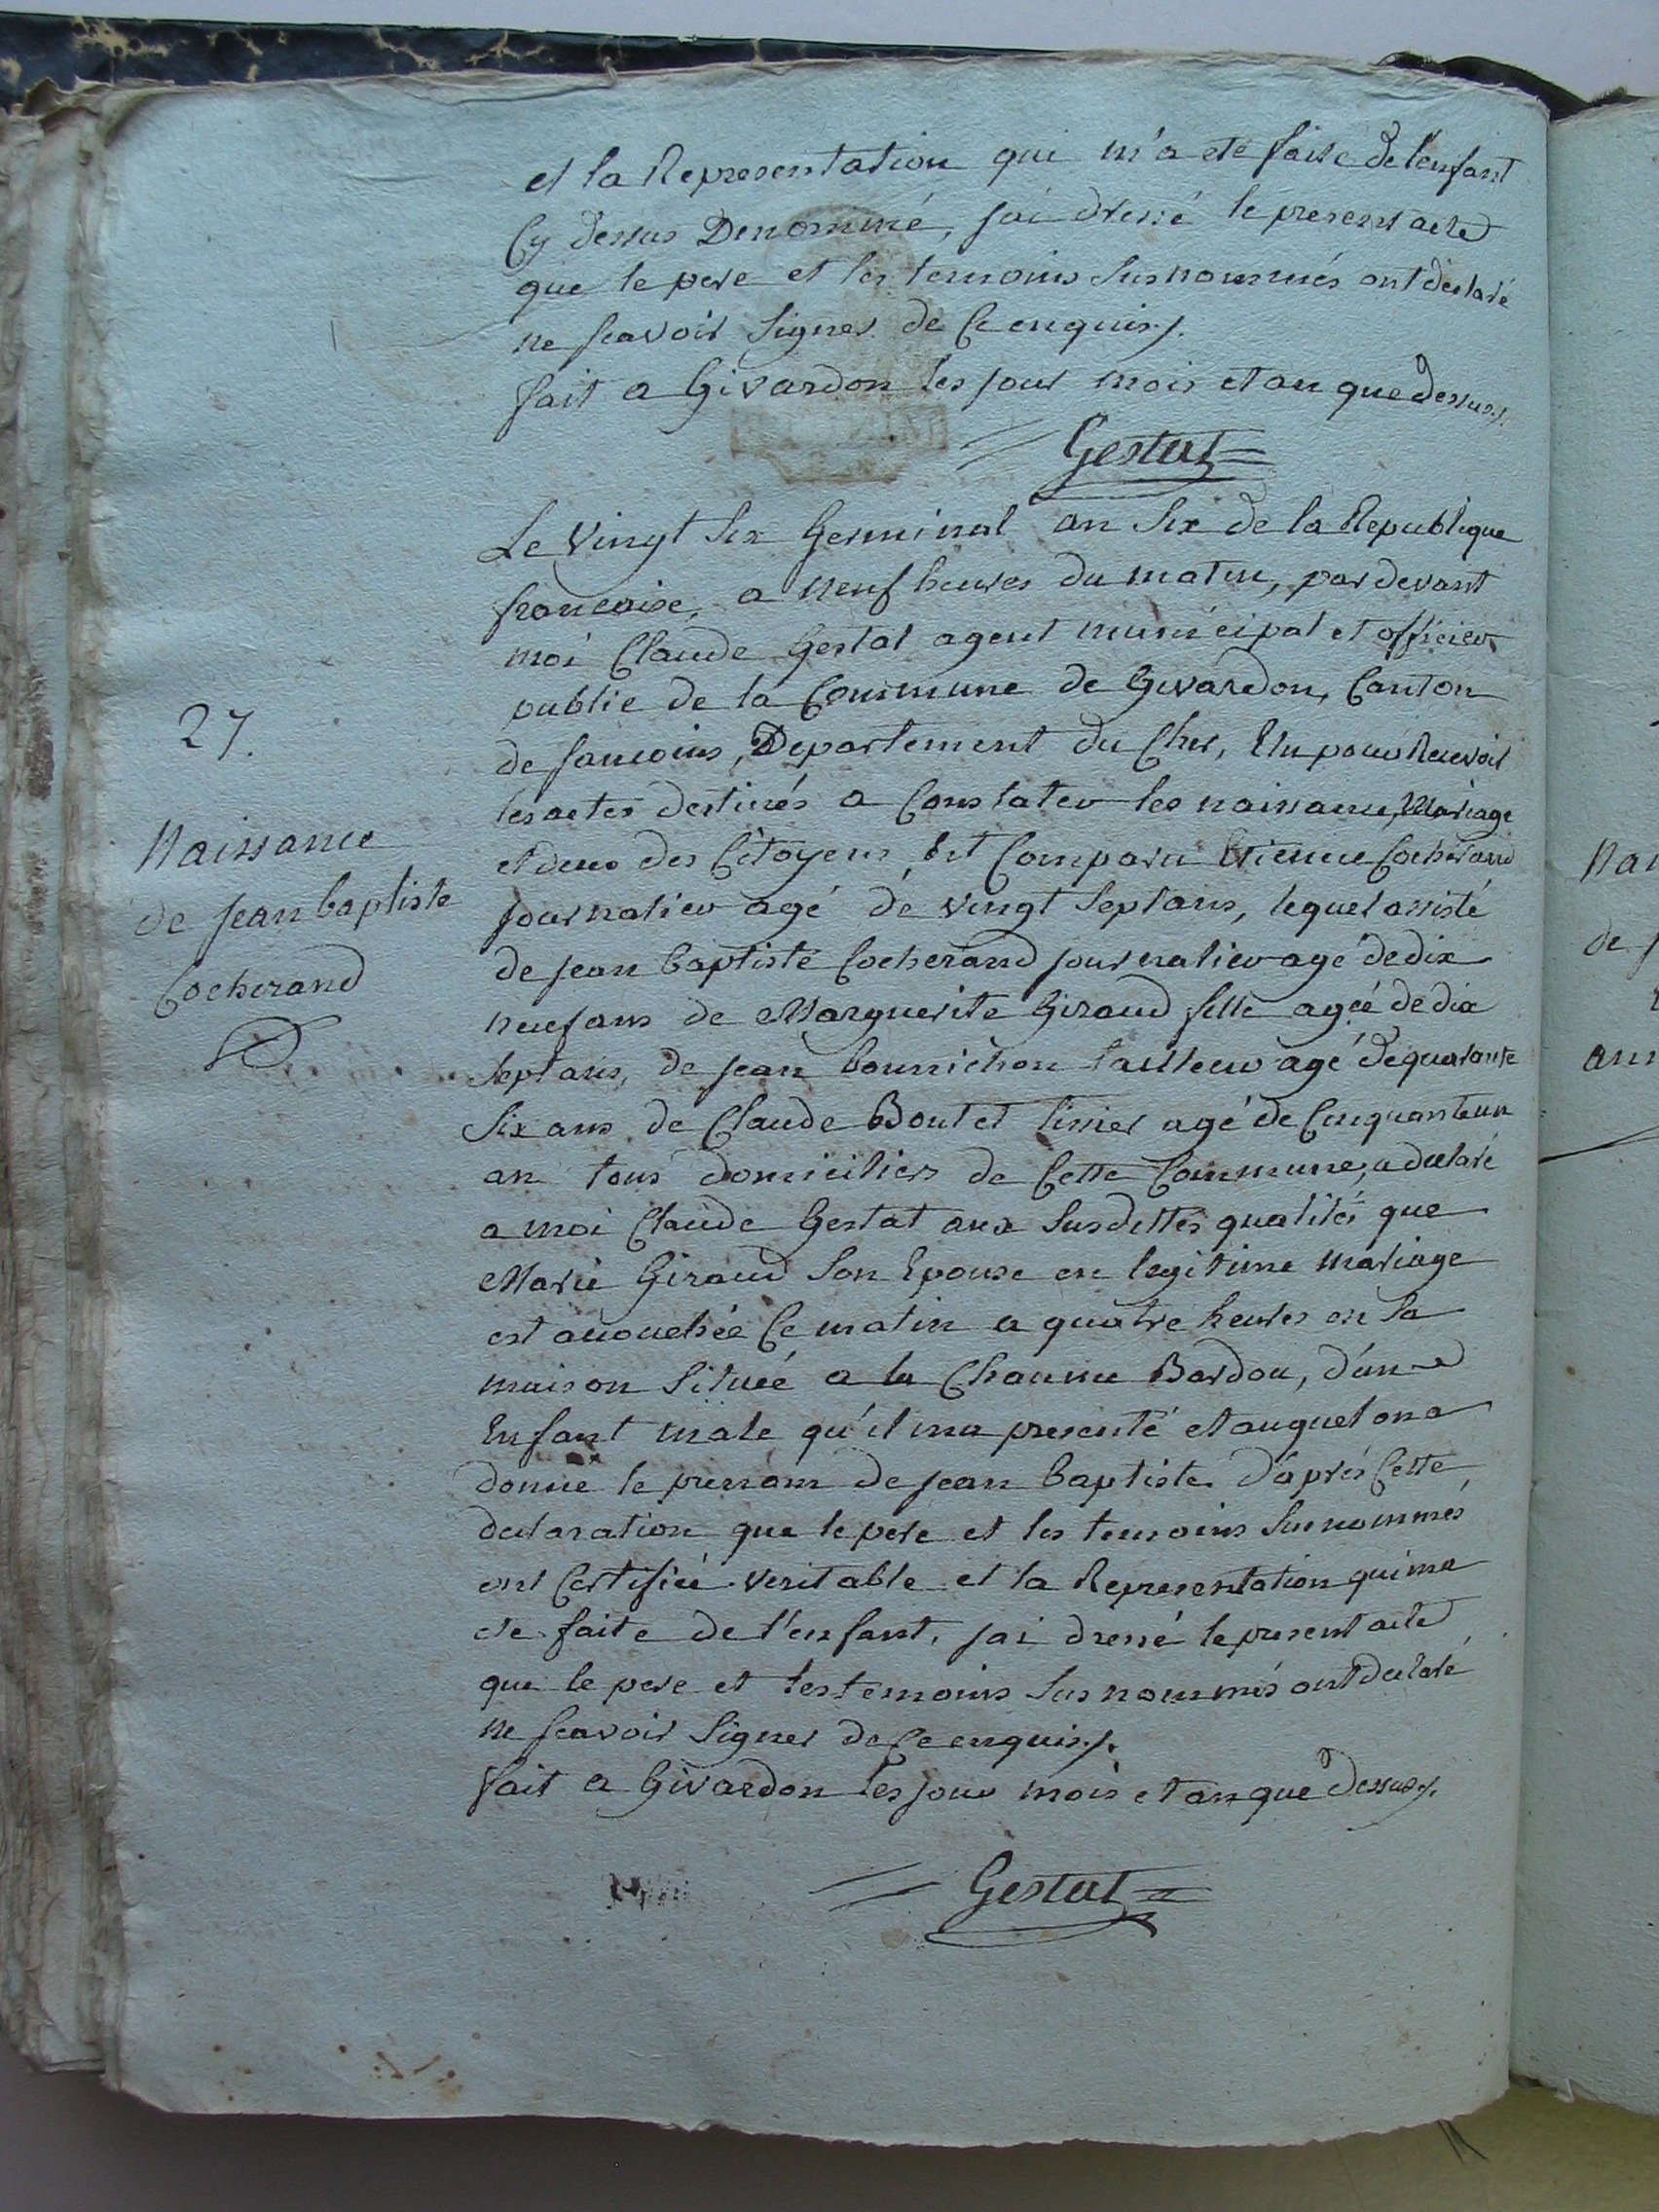 et la Representation qui m'a eté faite de l'enfant
Cy dessus Denommé, jai dressé le present acte
que le pere et les temoins susnommés ont declaré
ne scavoir signer de Ce enquis ./.
fait a Givardon les jour mois et an que dessus ./.
Gestat
Le Vingt six Germinal an six de la Republique
francaise, a neuf heures du matin, par devant
moi Claude Gestat agent municipal et officier
public de la Commune de Givardon, Canton
de sancoins, Departement du Cher, Elu pour Recevoir
les actes destinés a Constater les naissance, Mariage
et deces des Citoyens Est Comparu Etienne Cocherand
journalier agé de vingt sept ans, lequel assisté
de jean baptiste Cocherand journalier agé de dix
neuf ans de Marguerite Giraud fille agée de dix
sept ans, de jean bonnichon tailleur agé de quarante
six ans de Claude Boutet tissier agé de Cinquante un
an tous domiciliés de Cette Commune, a declaré
a moi Claude Gestat aux susdittes qualités que
Marie Giraud son Epouse en legitime mariage
est acouchée Ce matin a quatre heures en sa
maison située a la Chaume Bardou, d'un
Enfant male qu'il ma presenté et auquel on a
donné le prenom de jean baptiste. D'après Cette
declaration que le pere et les temoins susnommés
ont Certifiée veritable et la Representation qui ma
eté faite de l'enfant, jai dressé le present acte
que le pere et les temoins sus nommés ont declaré
ne scavoir signer de Ce enquis ./.
fait a Givardon les jour mois et an que dessus ./.
Gestat
27.
Naissance
de jean baptiste
Cocherand
Nai
de j
ann